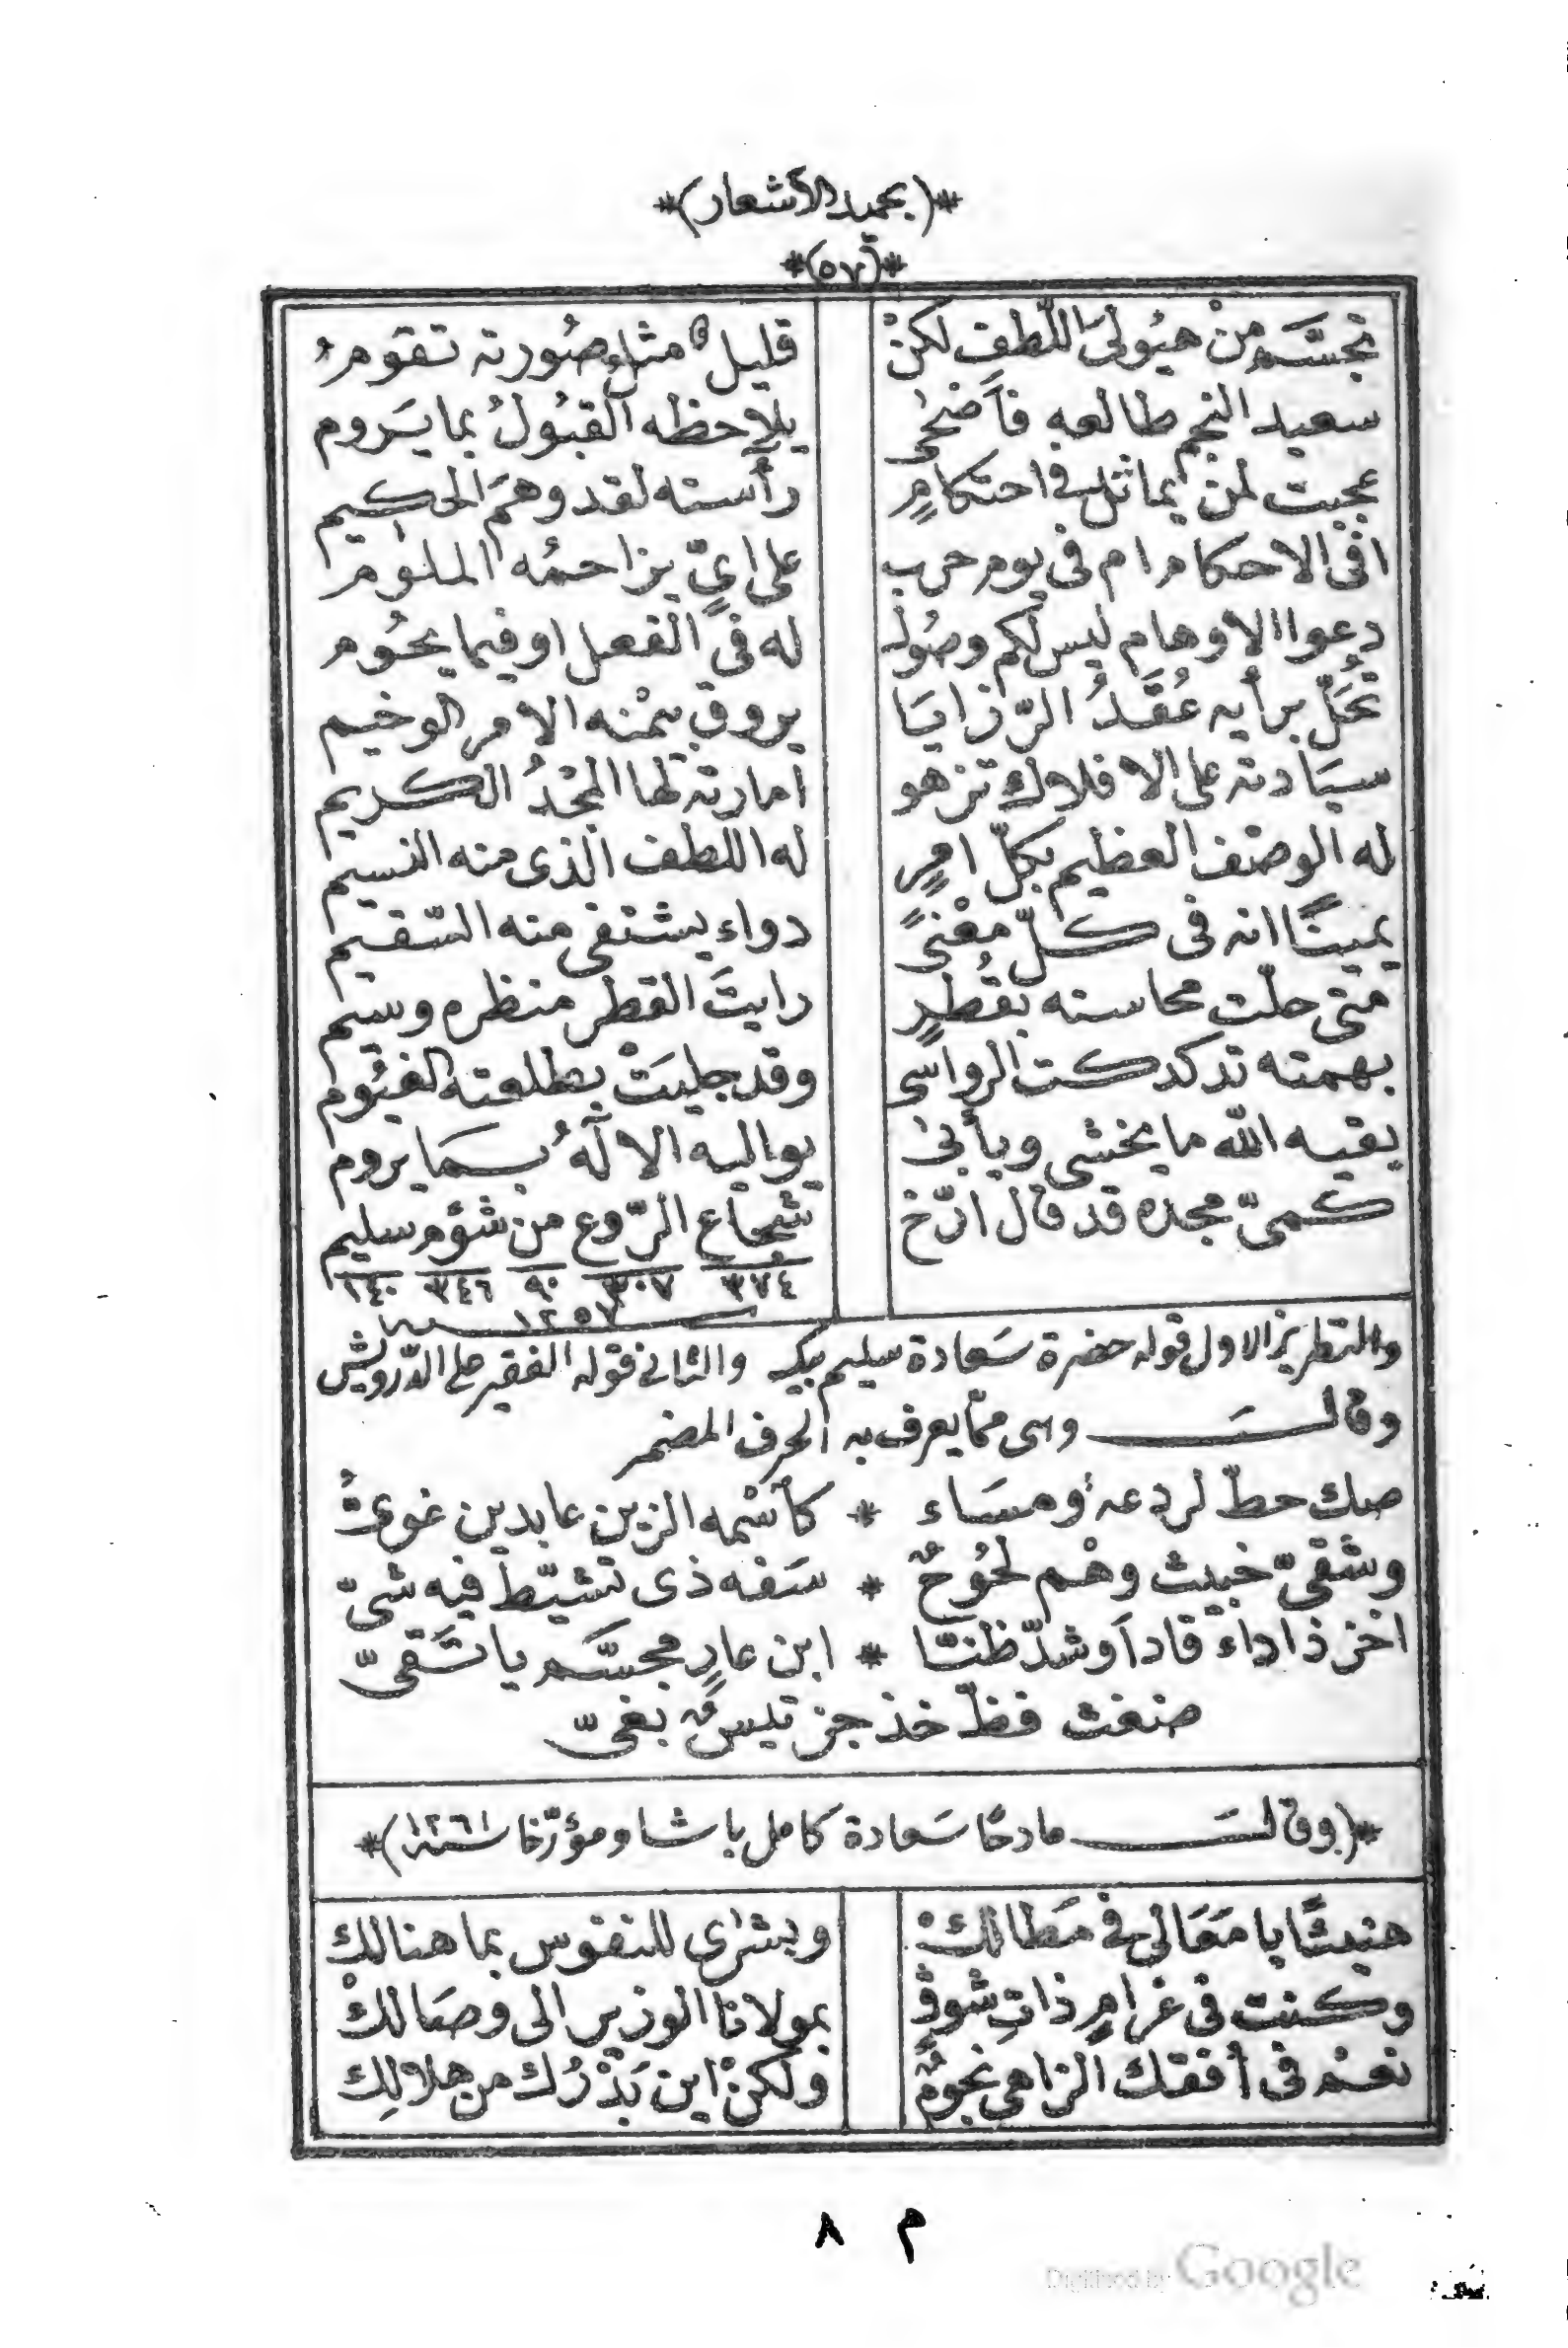 *(بحميد الأشعار)*
*(٥٧)*
تجسّم من هيُولَى اللّطف لكنْ قليلٌ مثلُ صُورته تقومُ
سعيد النجم طالعه فأضحى يلاحظه القبُولُ بما يَروم
عجبت لمن يماثل في احتكامٍ رأسته لقد وهَم الحكيم
افى الاحكام ام فى يوم حرب على ايٍّ يزاحمُه الملوم
دعوا الاوهام ليس لكم وصُول له فى الفعل او فيما يحُوم
تُحَلّ برأيه عُقَدُ الرّزايَا يروق بيمْنه الامر الوخيم
سيَادته على الافلاك تزهو امارته لها المجْدُ الكريم
له الوصْف العظيم بكلّ امرٍ له اللطف الذى منه النسيم
يمينًا انه فى كلّ معْنىً دواء يشتفى منه السّقيم
متى حلّت محاسنه بقُطرٍ رايتَ القطر منظره وسيم
بهمته تدكدكت الرواسى وقد جليَتْ بطلعته الغيُوم
يقيه الله ما يخشى ويأبى يواليه الالٰهُ بمَا يروم
كمىّ مجده قد قال ارّخ شجاع الرّوع من شؤم سليم
٣٧٤ ٣٠٧ ٩٠ ٣٤٦ ١٤٠
١٢٥٧ سنة
والتطريز الاول قوله حضرة سَعادة سليم بيك والثانى قوله الفقير على الدّرويش
وقالَ وهى ممّا يعرف به الحرف المضمر
صك حطّ لردعه أو مسَاء * كاَسْمه الزين عابدين غوىّ
وشقىّ خبيث وهْم لحُوحٌ * سَفه ذى تشيّط فيه شىّ
اخز ذا داء قاد أو شدّ ظنّا * ابن عارٍ مجسَّم يا تَقىّ
ضغث فظّ خذ جز تيسٌ بغىّ
*(وقالَ مادحًا سَعادة كامل باشا ومؤرّخا سنة ١٢٦١)*
هنيئًا يا مَعَالى فى مَطالكْ وبشرٰى للنفوس بما هنالكِ
وكنت فى غرامٍ ذاتِ شوقٍ بمولانا الوزير الى وصَالكْ
نعم فى أفقك الزاهى نجومٌ ولكنْ اين بَدْرُك من هلالِك
م ٨
Digitized by Google